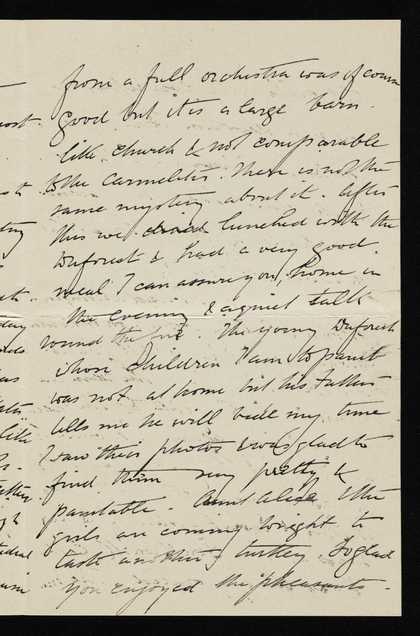 from a full orchestra was of course
good but it is a large barn
like church & not comparable
to the Carmelites. There is not the
same mystery about it. After
this we dined lunched with the
Deforest & had a very good
meal I can assure you, home in
the evening & a quiet talk
round the fire. The young Deforest
whose children I am to paint
was not at home but his father
tells me he will bide my time
I saw their photos & was glad to
find them very pretty &
paintable. Aunt Alice & the
girls are coming tonight to
taste another turkey. So glad
you enjoyed the pheasants.